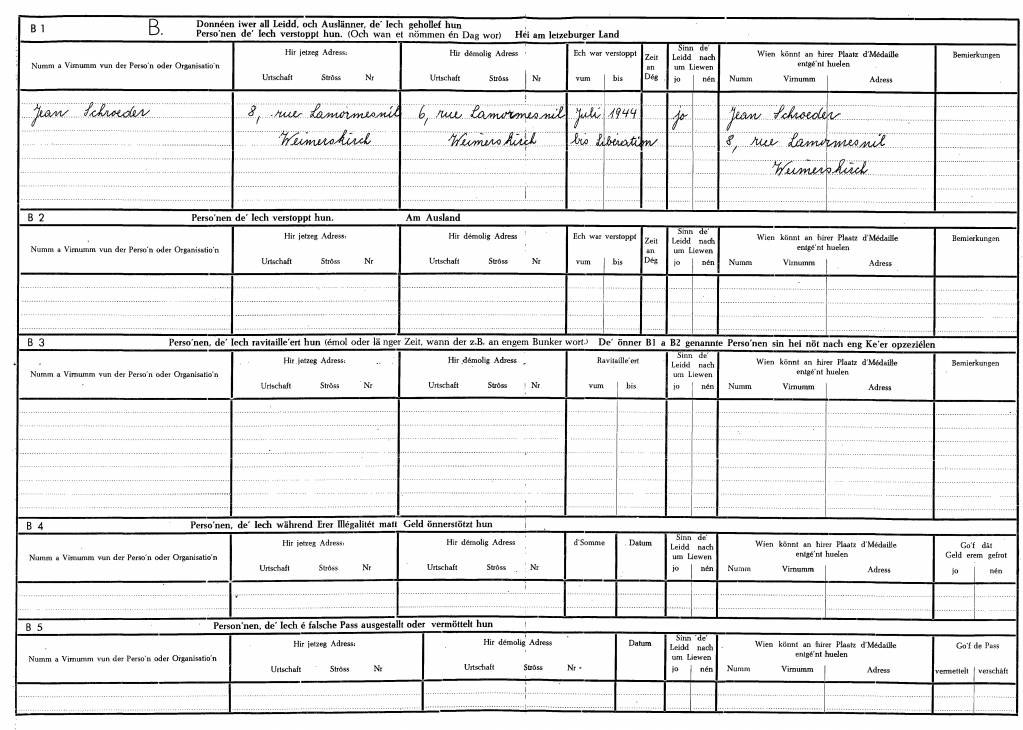 B 1
B.
Donnéen iwer all Leidd, och Auslänner, de' Iech gehollef hun
Perso'nen de' Iech verstoppt hun. (Och wan et nömmen én Dag wor) Hei am letzeburger Land
Numm a Virnumm vun der Perso'n oder Organisatio'n
Hir jetzeg Adress:
Urtschaft Ströss Nr
Hir démolig Adress
Urtschaft Ströss Nr
Ech war verstoppt
vum bis
Zeit
an
Dég
Sinn de'
Leidd nach
um Liewen
jo nén
Wien könnt an hirer Plaatz d'Médaille
entgé'nt huelen
Numm Virnumm Adress
Bemierkungen
Jean Schroeder 8, rue Lamormesnil 6, rue Lamormesnil Juli 1944 jo Jean Schroeder
Weimerskirch Weimerskirch bis Libération 8, rue Lamormesnil
Weimerskirch
B 2
Perso'nen de' Iech verstoppt hun. Am Ausland
Numm a Virnumm vun der Perso'n oder Organisatio'n
Hir jetzeg Adress:
Urtschaft Ströss Nr
Hir démolig Adress
Urtschaft Ströss Nr
Ech war verstoppt
vum bis
Zeit
an
Dég
Sinn de'
Leidd nach
um Liewen
jo nén
Wien könnt an hirer Plaatz d'Médaille
entgé'nt huelen
Numm Virnumm Adress
Bemierkungen
B 3
Perso'nen, de' Iech ravitaille'ert hun (émol oder länger Zeit, wann der z.B. an engem Bunker wort.) De' önner B1 a B2 genannte Perso'nen sin hei nöt nach eng Ke'er opzeziélen
Numm a Virnumm vun der Perso'n oder Organisatio'n
Hir jetzeg Adress:
Urtschaft Ströss Nr
Hir démolig Adress
Urtschaft Ströss Nr
Ravitaille'ert
vum bis
Sinn de'
Leidd nach
um Liewen
jo nén
Wien könnt an hirer Plaatz d'Médaille
entgé'nt huelen
Numm Virnumm Adress
Bemierkungen
B 4
Perso'nen, de' Iech während Erer Illégalitét matt Geld önnerstötzt hun
Numm a Virnumm vun der Perso'n oder Organisatio'n
Hir jetzeg Adress:
Urtschaft Ströss Nr
Hir démolig Adress
Urtschaft Ströss Nr
d'Somme
Datum
Sinn de'
Leidd nach
um Liewen
jo nén
Wien könnt an hirer Plaatz d'Médaille
entgé'nt huelen
Numm Virnumm Adress
Go'f dät
Geld erem gefrot
jo nén
B 5
Person'nen, de' Iech é falsche Pass ausgestallt oder vermöttelt hun
Numm a Virnumm vun der Perso'n oder Organisatio'n
Hir jetzeg Adress:
Urtschaft Ströss Nr
Hir démolig Adress
Urtschaft Ströss Nr
Datum
Sinn de'
Leidd nach
um Liewen
jo nén
Wien könnt an hirer Plaatz d'Médaille
entgé'nt huelen
Numm Virnumm Adress
Go'f de Pass
vermettelt verschäft